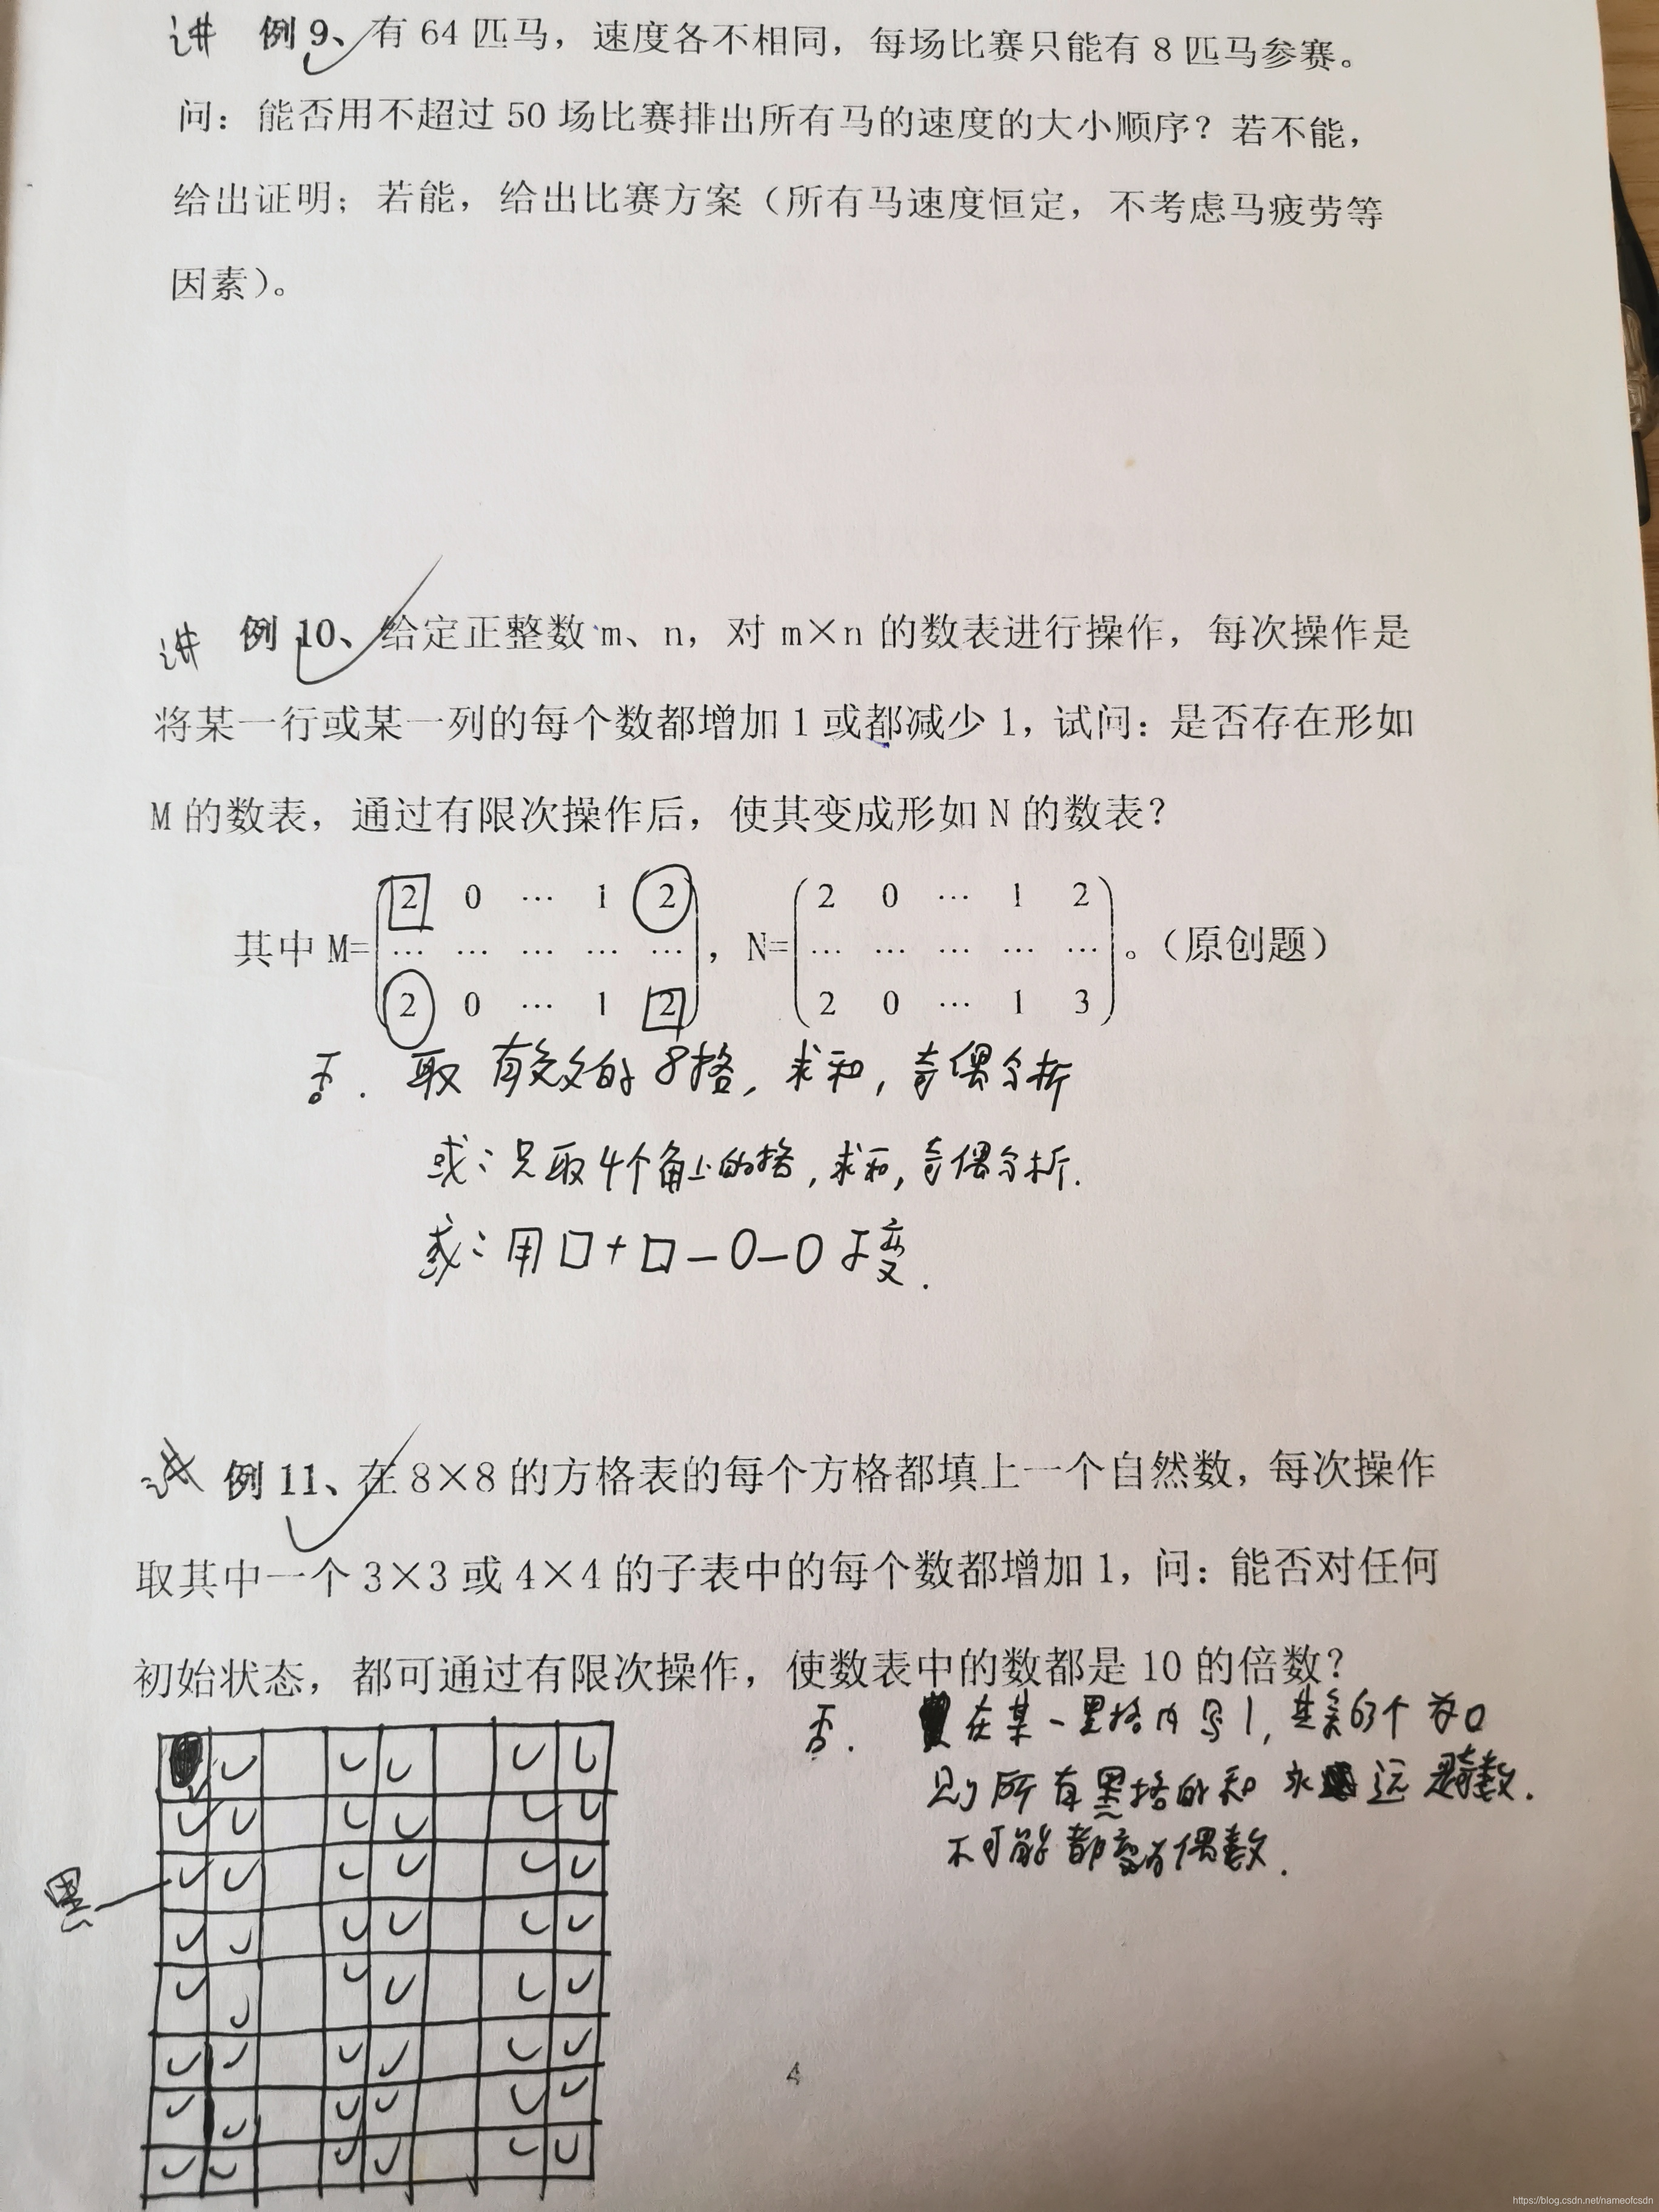 讲 例9、有 64 匹马，速度各不相同，每场比赛只能有 8 匹马参赛。
问：能否用不超过 50 场比赛排出所有马的速度的大小顺序？若不能，
给出证明；若能，给出比赛方案（所有马速度恒定，不考虑马疲劳等
因素）。
讲 例10、给定正整数 m、n，对 m×n 的数表进行操作，每次操作是
将某一行或某一列的每个数都增加 1 或都减少 1，试问：是否存在形如
M 的数表，通过有限次操作后，使其变成形如 N 的数表？
2 0 … 1 2 2 0 … 1 2
其中 M= … … … … … ，N= … … … … … 。（原创题）
2 0 … 1 2 2 0 … 1 3
否. 取有数的8格，求和，奇偶分析
或：只取4个角上的格，求和，奇偶分析.
或：用□+□-O-O不变.
讲 例11、在 8×8 的方格表的每个方格都填上一个自然数，每次操作
取其中一个 3×3 或 4×4 的子表中的每个数都增加 1，问：能否对任何
初始状态，都可通过有限次操作，使数表中的数都是 10 的倍数？
否. 在某一黑格内写1，其余63个为0
则所有黑格的和永远是奇数.
不可能都变为偶数.
黑
4
https://blog.csdn.net/nameofcsdn